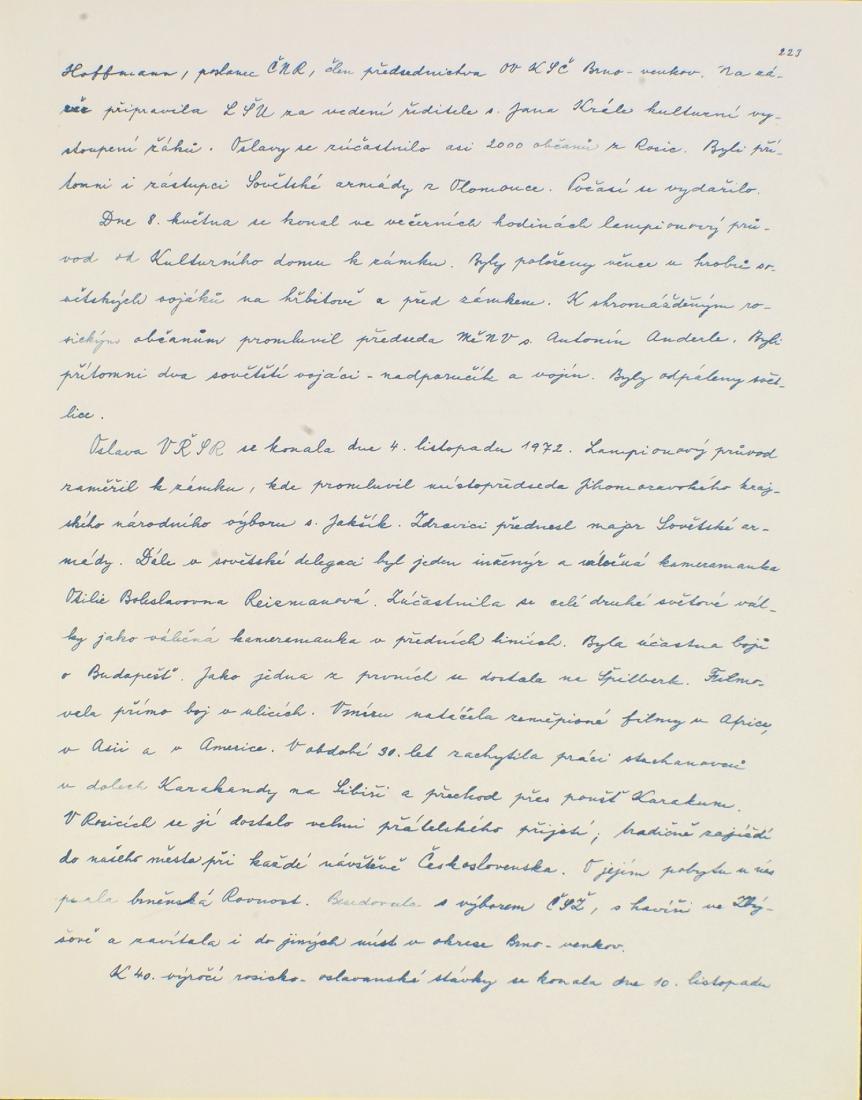 223
Hoffmann, poslanec ČNR, člen předsednictva OV KSČ Brno-venkov. Na zá-
věr připravila LŠU za vedení ředitele s. Jana Krále kulturní vy-
stoupení žáků. Oslavy se zúčastnilo asi 2000 občanů z Rosic. Byli pří-
tomni i zástupci Sovětské armády z Olomouce. Počasí se vydařilo.
Dne 8. května se konal ve večerních hodinách lampionový prů-
vod od Kulturního domu k zámku. Byly položeny věnce u hrobů so-
větských vojáků na hřbitově a před zámkem. K shromážděným ro-
sickým občanům promluvil předseda MěNV s. Antonín Anderle. Byli
přítomni dva sovětští vojáci - nadporučík a vojín. Byly odpáleny svět-
lice.
Oslava VŘSR se konala dne 4. listopadu 1972. Lampionový průvod
zaměřil k zámku, kde promluvil místopředseda Jihomoravského kraj-
ského národního výboru s. Jakšík. Zdravici přednesl major Sovětské ar-
mády. Dále v sovětské delegaci byl jeden inženýr a válečná kameramanka
Otilie Boleslavovna Reizmanová. Zúčastnila se celé druhé světové vál-
ky jako válečná kameramanka v předních liniích. Byla účastna bojů
o Budapešť. Jako jedna z prvních se dostala na Špilberk. Filmo-
vala přímo boj v ulicích. V míru natáčela zeměpisné filmy v Africe,
v Asii a v Americe. V období 30. let zachytila práci stachanovců
v dolech Karakandy na Sibiři a přechod přes poušť Karakum.
V Rosicích se jí dostalo velmi přátelského přijetí; tradičně zajíždí
do našeho města při každé návštěvě Československa. O jejím pobytu u nás
psala brněnská Rovnost. Besedovala s výborem ČSŽ, s havíři ve Zbý-
šově a zavítala i do jiných míst v okrese Brno-venkov.
K 40. výročí rosicko-oslavanské stávky se konala dne 10. listopadu